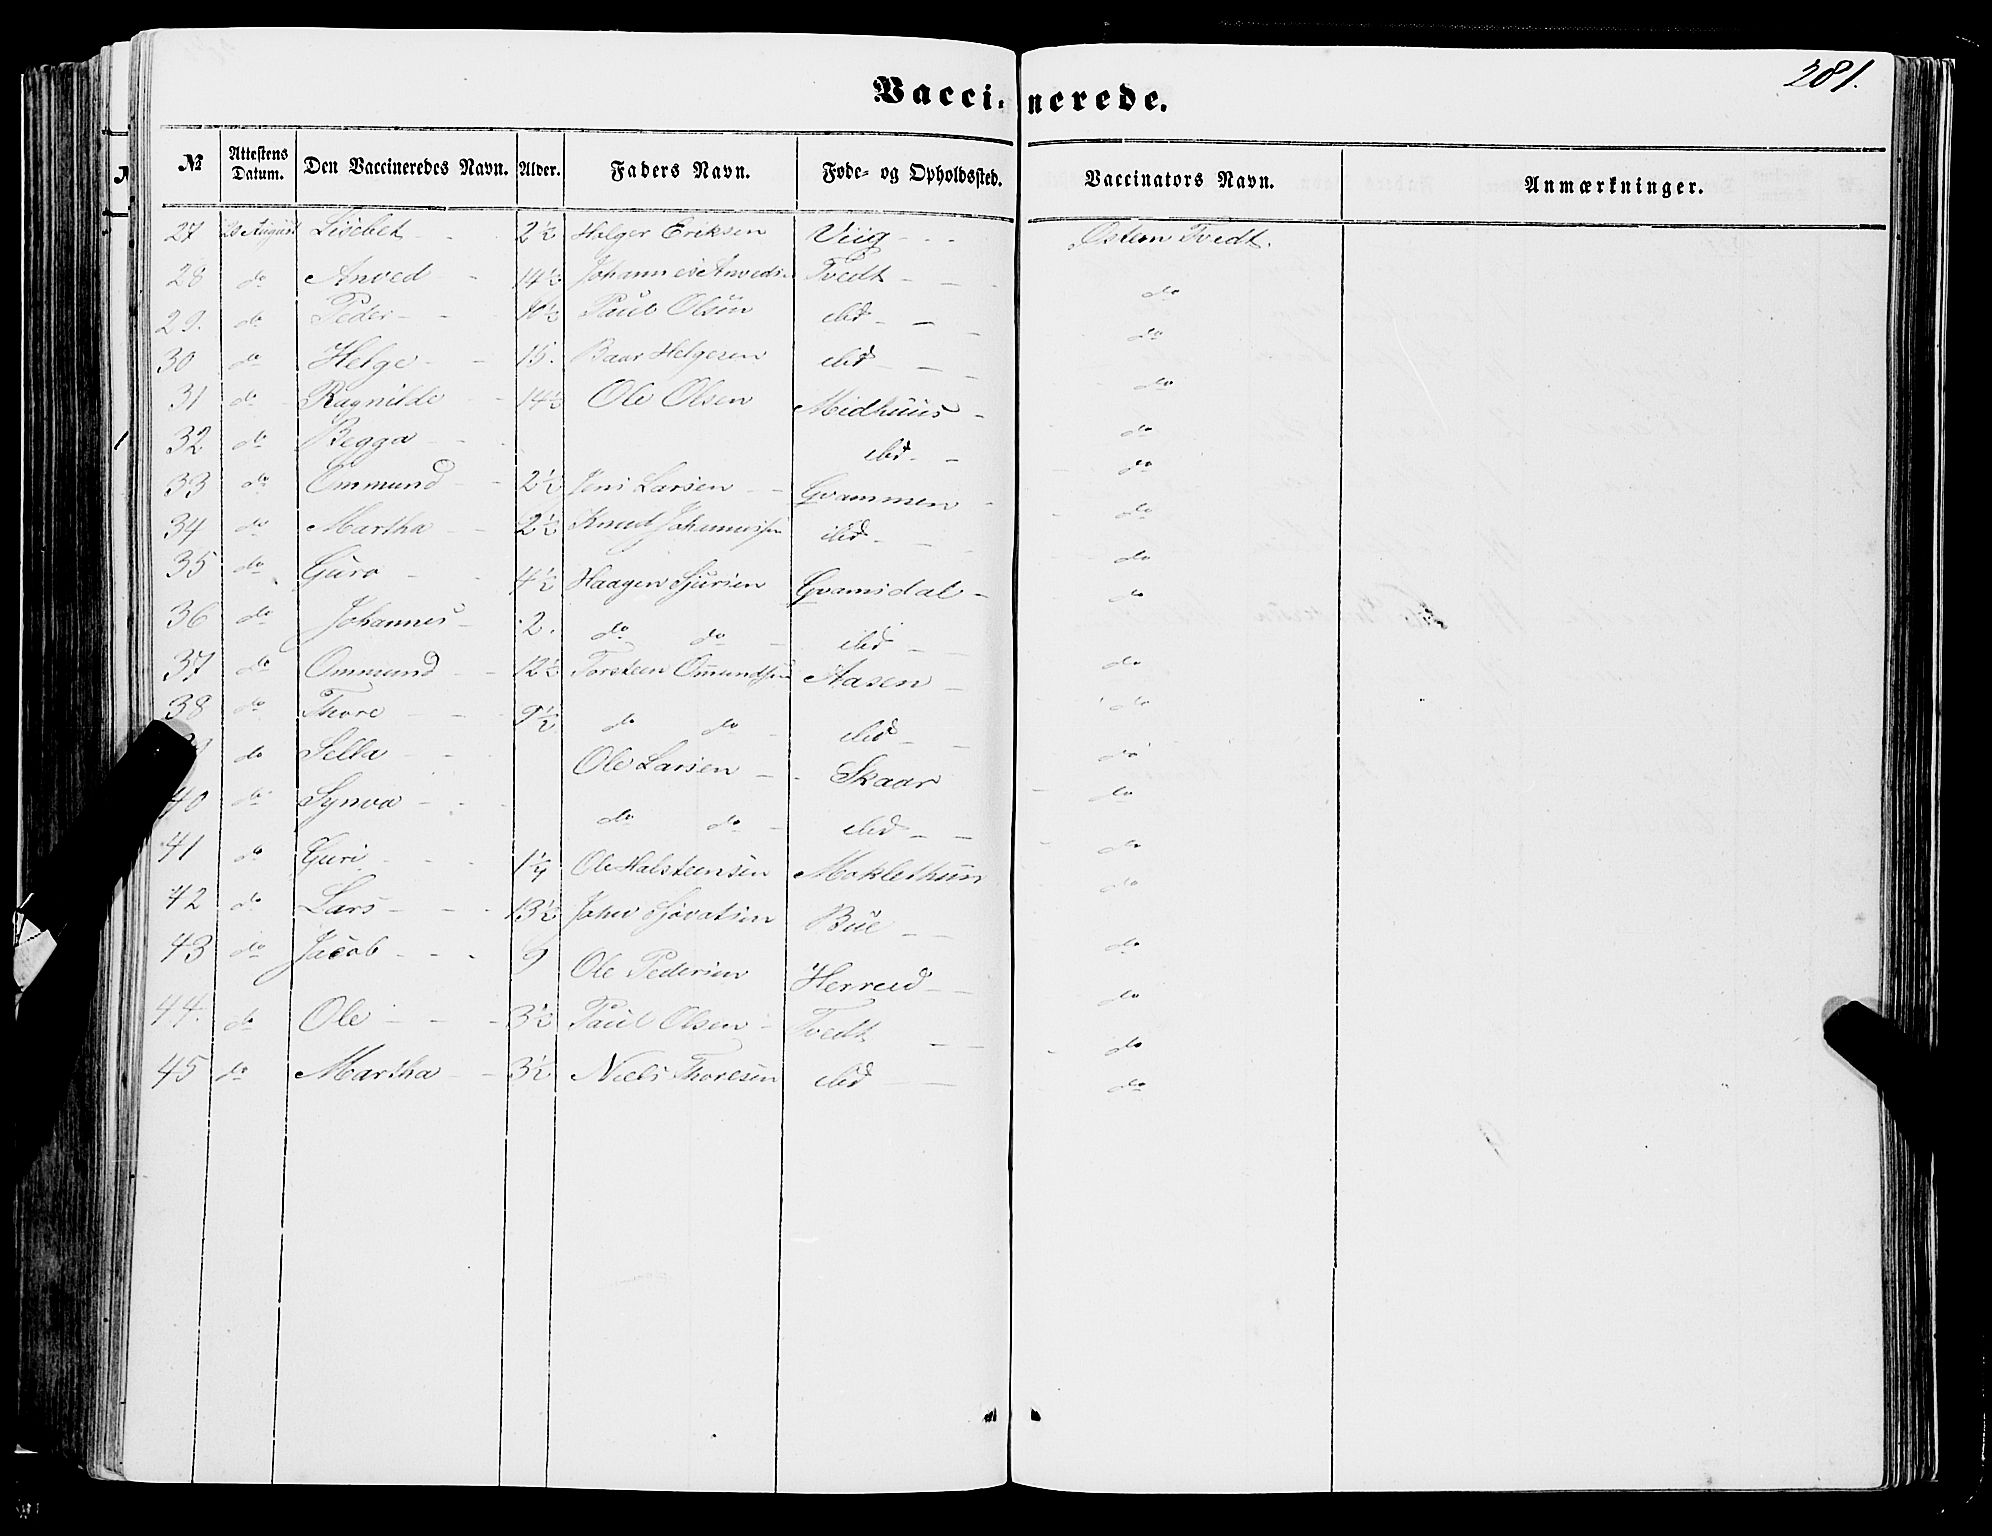 281.
Vaccinerede.
№ Attestens Datum. Den Vaccineredes Navn. Alder. Faders Navn. Føde- og Opholdssted. Vaccinators Navn. Anmærkninger.
27 28 August Lisebet - - 2½ Helger Eriksen Viig - - Østen Tvedt.
28 do Anved - 14½ Johannes Anveds Tvedt - - do
29. do Peder - - 10½ Paul Olsen ibid - - do
30 do Helge - - 15. Baar Helgesen ibid - - do
31 do Ragnilde - 14½ Ole Olsen Midhuus - do
32 do Begga - - ibid - - do
33 do Ommund - - 2½ Jens Larsen - - Gvammen - do
34 do Martha - 2½ Knud Johannessen ibid - - do
35 do Guro - - 4½ Haagen Sjursen Gvamsdal - do
36 do Johannes - 2. do do - ibid - - do
37 do Ommund - - 12½ Torsteen Omundsen Aasen - do
38 do Thore - - 9½ do do - ibid - - do
do Sella - - Ole Larsen - - Skaar do
40 do Synva - - do do - ibid - - do
41 do Guri - - - 1¼ Ole Halsteensen Moklethun do
42 do Lars - - - 13½ John Sjovatsen Büe - - do
43 do Jacob - - - 9 Ole Pedersen Herreid - - do
44. do Ole - - - 3½ Paul Olsen - Tvedt - - do
45 do Martha - - 3½ Niels Thoresen ibid - - do